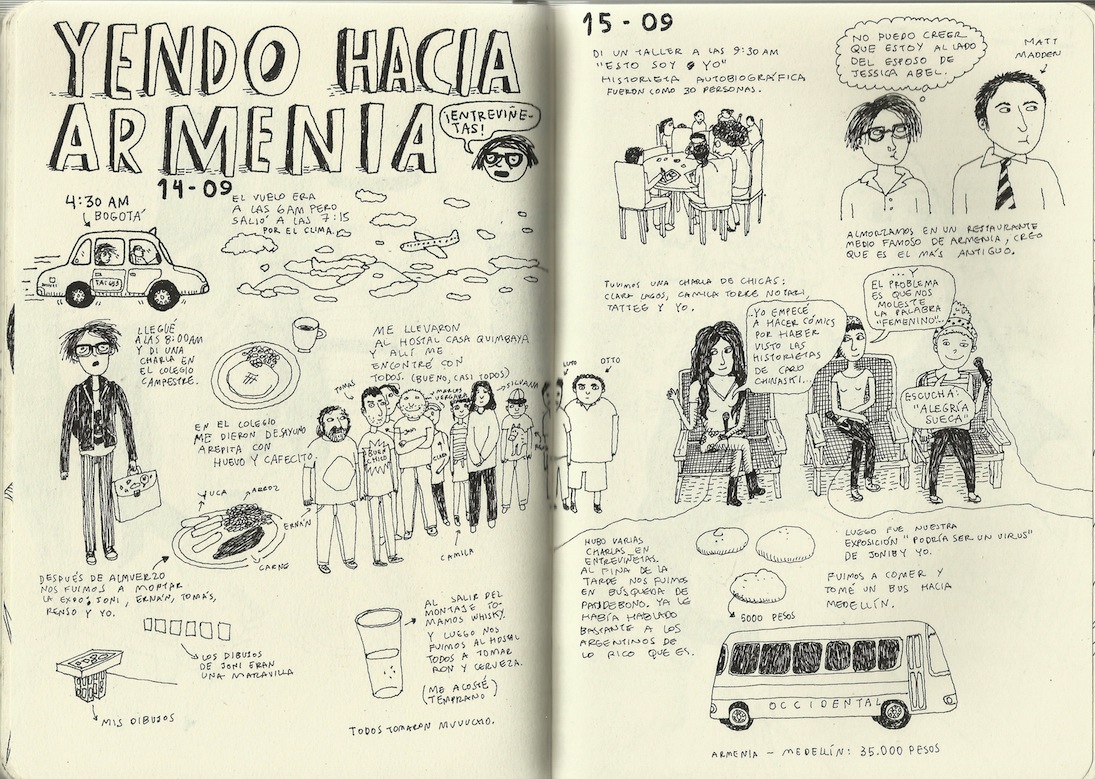 YENDO HACIA
ARMENIA
¡ENTREVIÑE-
TAS!
14-09
4:30 AM
BOGOTÁ
EL VUELO ERA
A LAS 6AM PERO
SALIÓ A LAS 7:15
POR EL CLIMA.
LLEGUÉ
A LAS 8:00AM
Y DI UNA
CHARLA EN
EL COLEGIO
CAMPESTRE.
EN EL COLEGIO
ME DIERON DESAYUNO
AREPITA CON
HUEVO Y CAFECITO.
ME LLEVARON
AL HOSTAL CASA QUIMBAYA
Y ALLÍ ME
ENCONTRÉ CON
TODOS. (BUENO, CASI TODOS)
TOMÁS
MARCOS
VERGARA
SILVANA
JONI
BUEN
CHICO
CLARA
ERNÁN
CAMILA
LUTO
OTTO
YUCA
ARROZ
CARNE
DESPUÉS DE ALMUERZO
NOS FUIMOS A MONTAR
LA EXPO: JONI, ERNÁN, TOMÁS,
RENSO Y YO.
LOS DIBUJOS
DE JONI ERAN
UNA MARAVILLA
MIS DIBUJOS
AL SALIR DEL
MONTAJE TO-
MAMOS WHISKY.
Y LUEGO NOS
FUIMOS AL HOSTAL
TODOS A TOMAR
RON Y CERVEZA.
(ME ACOSTÉ
TEMPRANO)
TODOS TOMARON MUUUCHO.
15-09
DI UN TALLER A LAS 9:30 AM
"ESTO SOY YO"
HISTORIETA AUTOBIOGRÁFICA
FUERON COMO 30 PERSONAS.
NO PUEDO CREER
QUE ESTOY AL LADO
DEL ESPOSO DE
JESSICA ABEL.
MATT
MADDEN
ALMORZAMOS EN UN RESTAURANTE
MEDIO FAMOSO DE ARMENIA, CREO
QUE ES EL MÁS ANTIGUO.
TUVIMOS UNA CHARLA DE CHICAS:
CLARA LAGOS, CAMILA TORRE NOTARI,
TATTEE Y YO.
..YO EMPECÉ
A HACER CÓMICS
POR HABER
VISTO LAS
HISTORIETAS
DE CARO
CHINASKI...
...Y
EL PROBLEMA
ES QUE NOS
MOLESTE
LA PALABRA
"FEMENINO"..
ESCUCHA:
"ALEGRÍA
SUECA"
HUBO VARIAS
CHARLAS EN
ENTREVIÑETAS.
AL FINAL DE LA
TARDE NOS FUIMOS
EN BÚSQUEDA DE
PANDEBONO. YA LE
HABÍA HABLADO
BASTANTE A LOS
ARGENTINOS DE
LO RICO QUE ES.
5000 PESOS
LUEGO FUE NUESTRA
EXPOSICIÓN "PODRÍA SER UN VIRUS"
DE JONI BY YO.
FUIMOS A COMER Y
TOMÉ UN BUS HACIA
MEDELLÍN.
OCCIDENTAL
ARMENIA – MEDELLÍN: 35.000 PESOS